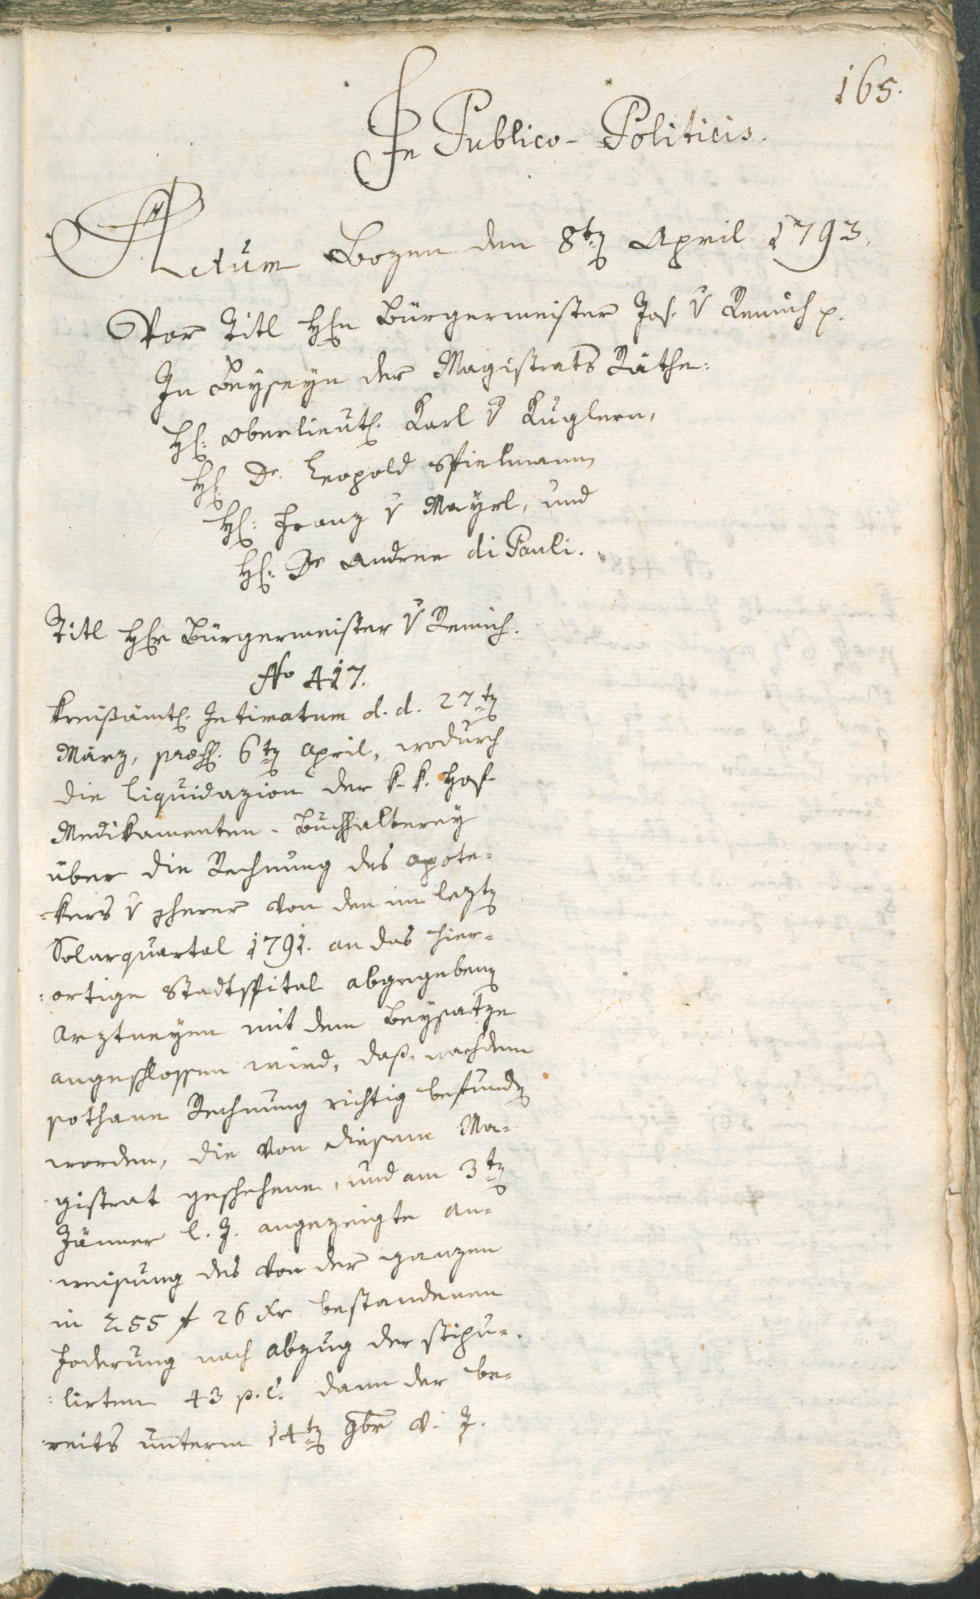 165.
In Publico-Politicis.
Actum Bozen den 8ten April 1793.
Vor Titl Hn Bürgermeister Jos. v Remich p.
In Beyseyn der Magistrats Räthe:
H: Oberlieut: Karl v Kuglern,
H: Dr. Leopold Spielmann
H: Franz v Mayrl, und
H: Dr Andree di Pauli.
Titl Hn Bürgermeister v Remich.
No 417.
kreißämtl: Intimatum d. d. 27ten
März, præs: 6ten April, wodurch
die Liquidazion der k. k. Hof-
Medikamenten-Buchhalterey
über die Rechnung des Apote-
-kers v von den im lezten
Solarquartal 1791. an das hier-
ortige Stadtspital abgegebenen
Arztneyen mit dem Beysatze
angeschlossen wird, daß nachdem
sothane Rechnung richtig befunden
worden, die von diesem Ma-
gistrat geschehene, und am 3ten
Jänner l. J. angezeigte An-
weisung des von der ganzen
in 255 f 26 xr bestandenen
Foderung nach Abzug der stipu-
lirten 43 p. C. dann der be-
reits unterm 14ten 9br v. J.